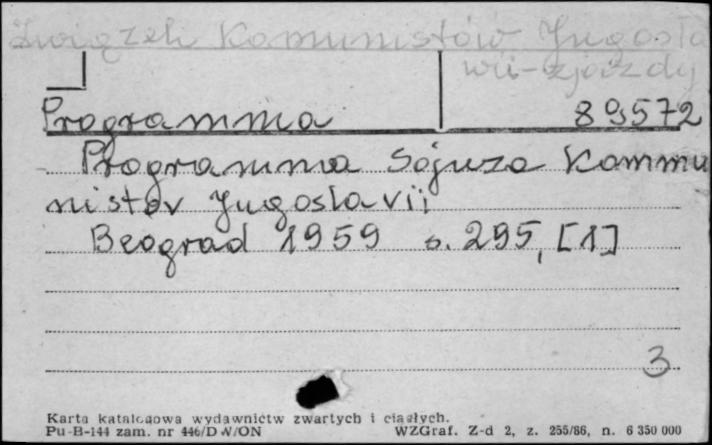 Związek Komunistów Jugosła
wii-zjazdy
Programma 89572
Programma Sojuza Kommu
nistov Jugoslavii
Beograd 1959 s. 295, [1]
3
Karta katalogowa wydawnictw zwartych i ciągłych.
Pu-B-144 zam. nr 446/D W/ON WZGraf. Z-d 2, z. 255/86, n. 6 350 000